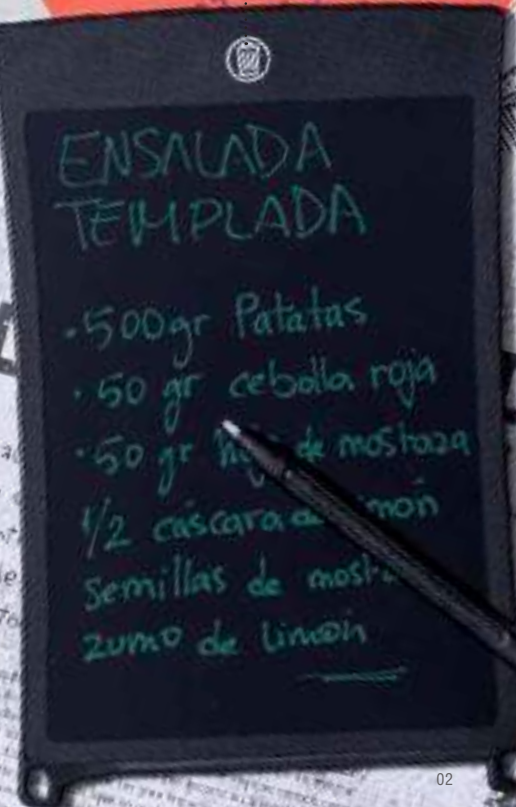 ENSALADA
TEMPLADA
·500gr Patatas
·50 gr cebolla roja
·50 gr de mostaza
1/2 cáscara
semillas de
zumo de limón
02